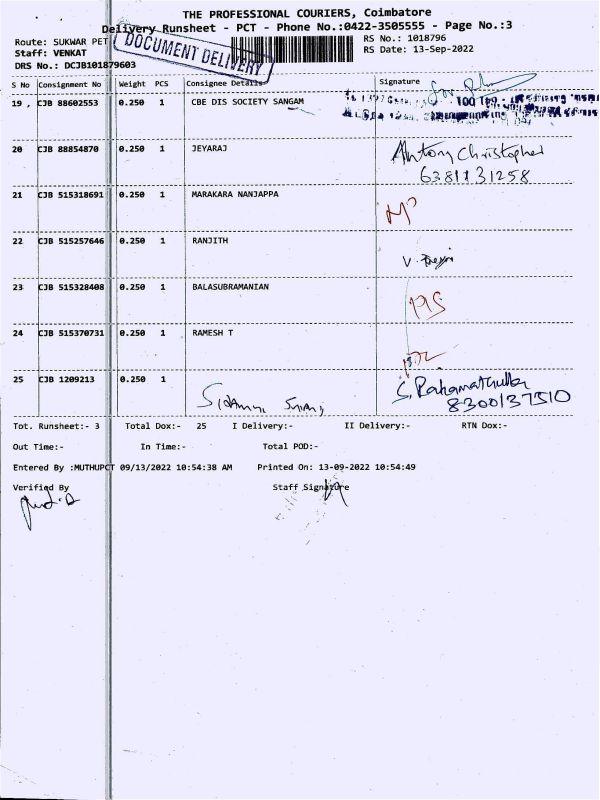 THE PROFESSIONAL COURIERS, Coimbatore
Delivery Runsheet - PCT - Phone No.:0422-3505555 - Page No.:3
Route: SUKWAR PET
Staff: VENKAT
DRS No.: DCJB101879603
DOCUMENT DELIVERY
RS No.: 1018796
RS Date: 13-Sep-2022
S No Consignment No Weight PCS Consignee Details Signature
19 , CJB 88602553 0.250 1 CBE DIS SOCIETY SANGAM
20 CJB 88854870 0.250 1 JEYARAJ Antony Christopher
6381131258
21 CJB 515318691 0.250 1 MARAKARA NANJAPPA
22 CJB 515257646 0.250 1 RANJITH V.
23 CJB 515328408 0.250 1 BALASUBRAMANIAN
24 CJB 515370731 0.250 1 RAMESH T
25 CJB 1209213 0.250 1 S. Rahamathulla
8300137510
Tot. Runsheet:- 3 Total Dox:- 25 I Delivery:- II Delivery:- RTN Dox:-
Out Time:- In Time:- Total POD:-
Entered By :MUTHUPCT 09/13/2022 10:54:38 AM Printed On: 13-09-2022 10:54:49
Verified By Staff Signature